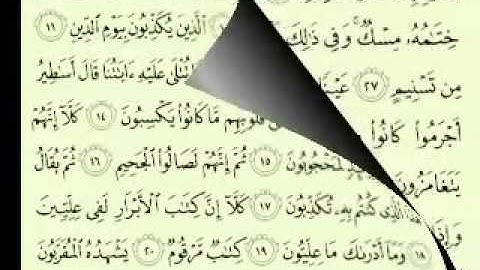 خِتَٰمُهُۥ مِسْكٌ ۚ وَفِى ذَٰلِكَ ٱلَّذِينَ يُكَذِّبُونَ بِيَوْمِ ٱلدِّينِ ١١
مِن تَسْنِيمٍ ٢٧ عَيْنًا تُتْلَىٰ عَلَيْهِ ءَايَٰتُنَا قَالَ أَسَٰطِيرُ
أَجْرَمُوا۟ كَانُوا۟ قُلُوبِهِم مَّا كَانُوا۟ يَكْسِبُونَ ١٤ كَلَّآ إِنَّهُمْ
يَتَغَامَزُونَ لَّمَحْجُوبُونَ ١٥ ثُمَّ إِنَّهُمْ لَصَالُوا۟ ٱلْجَحِيمِ ١٦ ثُمَّ يُقَالُ
وَإِذَا ٱلَّذِى كُنتُم بِهِۦ تُكَذِّبُونَ ١٧ كَلَّآ إِنَّ كِتَٰبَ ٱلْأَبْرَارِ لَفِى عِلِّيِّينَ
١٨ وَمَآ أَدْرَىٰكَ مَا عِلِّيُّونَ ١٩ كِتَٰبٌ مَّرْقُومٌ ٢٠ يَشْهَدُهُ ٱلْمُقَرَّبُونَ